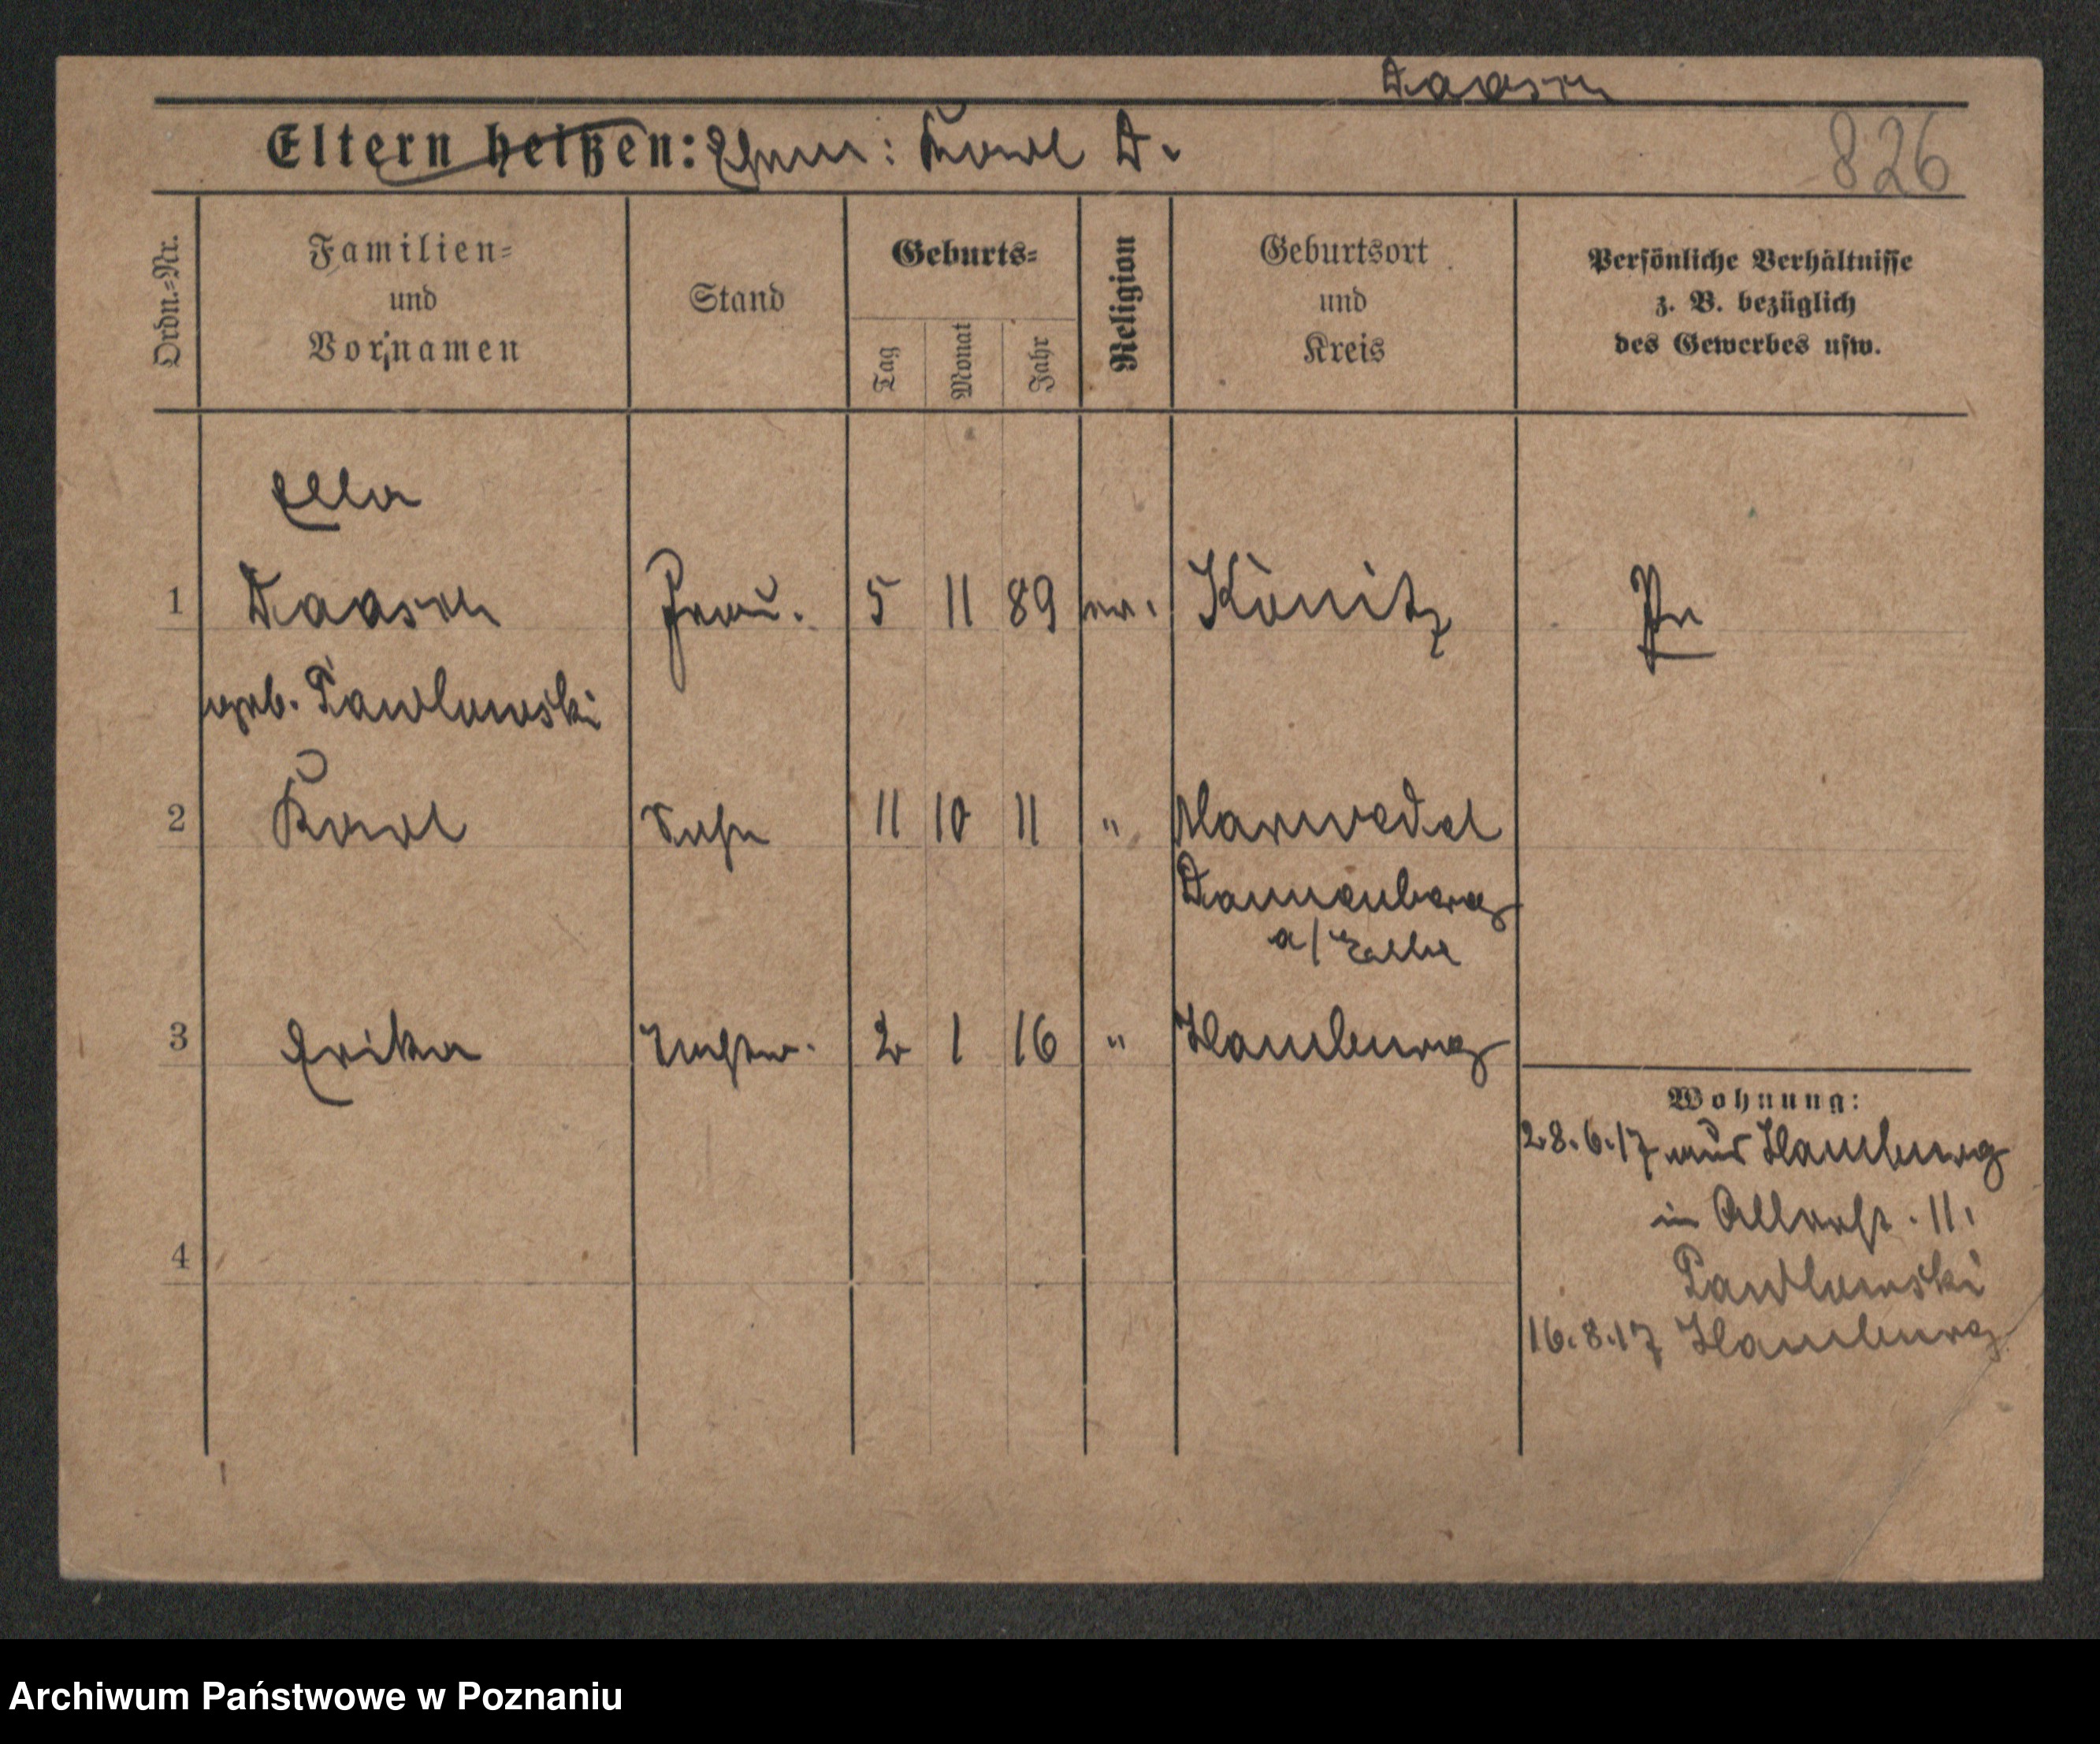 Daasch
Eltern heißen: Ehem: Karl D.
826
Ordn.-Nr.
Familien-
und
Vornamen
Stand
Geburts-
Tag
Monat
Jahr
Religion
Geburtsort
und
Kreis
Persönliche Verhältnisse
z. B. bezüglich
des Gewerbes usw.
Ella
1 Daasch Frau. 5 11 89 ev. Könitz Pr
geb. Pawlowski
2 Karl Sohn 11 10 11 " Marwedel
Dannenberg
a/Elbe
3 Erika Tochter. 2 1 16 " Hamburg
Wohnung:
28.6.17 aus Hamburg
in 11.
4
Pawlowski
16.8.17 Hamburg
Archiwum Państwowe w Poznaniu